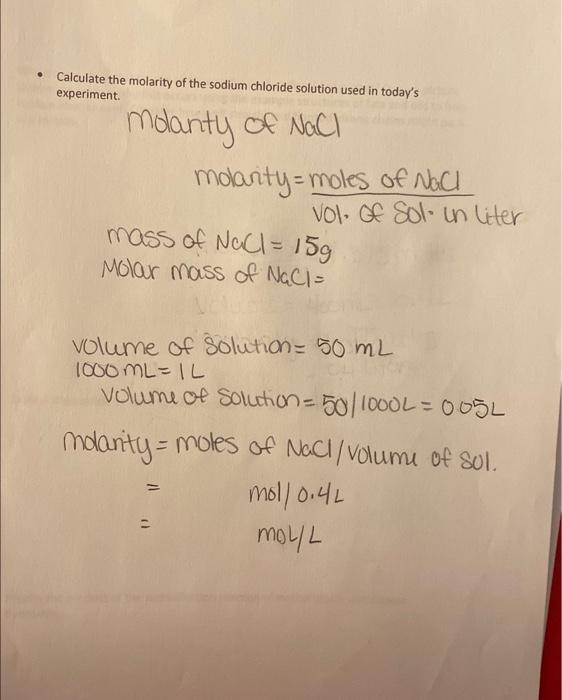 • Calculate the molarity of the sodium chloride solution used in today's
experiment.
Molarity of NaCl
molarity = moles of NaCl
vol. of Sol. in liter
mass of NaCl = 15g
Molar mass of NaCl =
volume of Solution = 50 mL
1000 mL = 1L
volume of Solution = 50/1000L = 0.05L
molarity = moles of NaCl/volume of sol.
= mol/0.4L
= mol/L